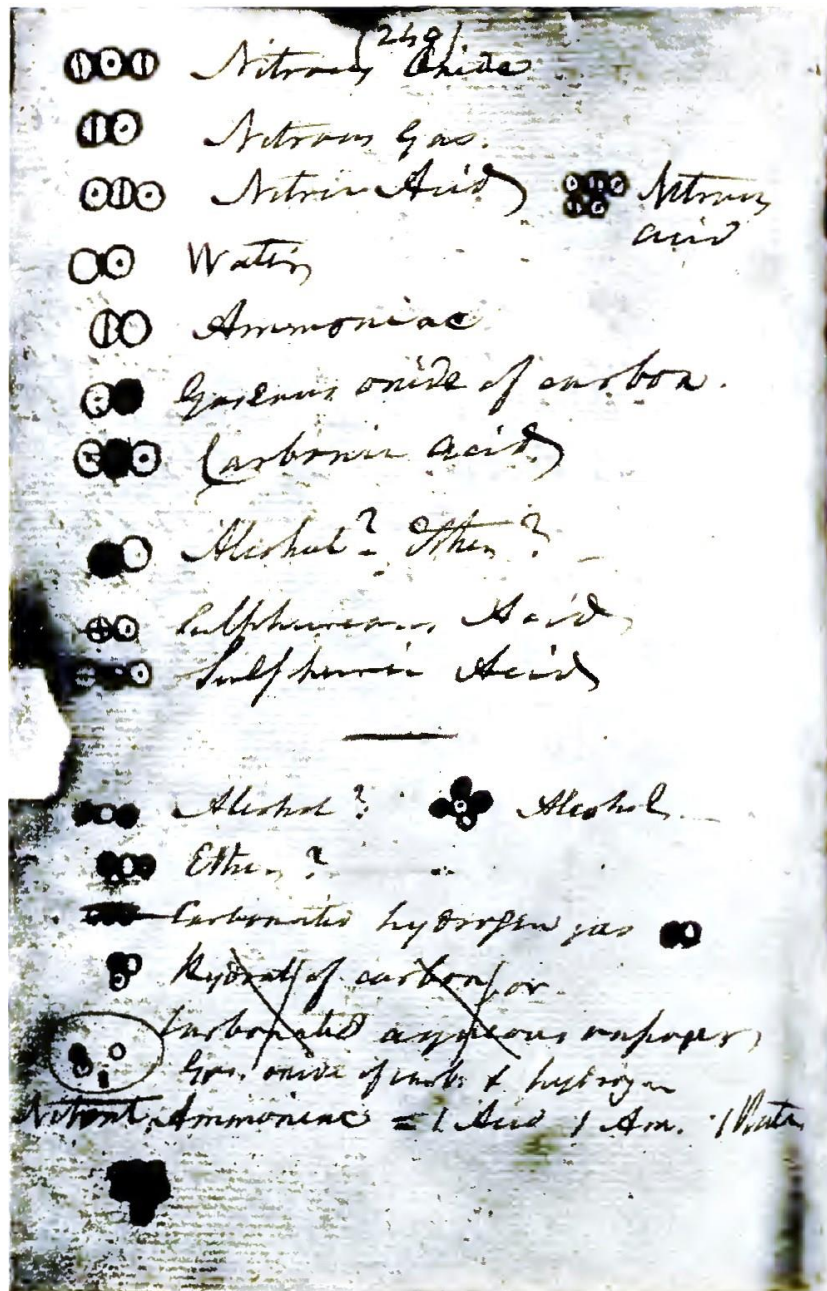 (249)
Nitrous Oxide
Nitrous Gas.
Nitric Acid
Nitrous
acid
Water
Ammoniac
Gaseous oxide of carbon.
Carbonic acid
Alcohol? Ether?
Sulphureous Acid
Sulphuric Acid
Alcohol? Alcohol
Ether?
Carbonated hydrogen gas
Hydrat of carbon or
Carbonated aqueous vapour
Gas. oxide of carb. & hydrogen
Nitrat Ammoniac = 1 Acid 1 Am. 1 Water